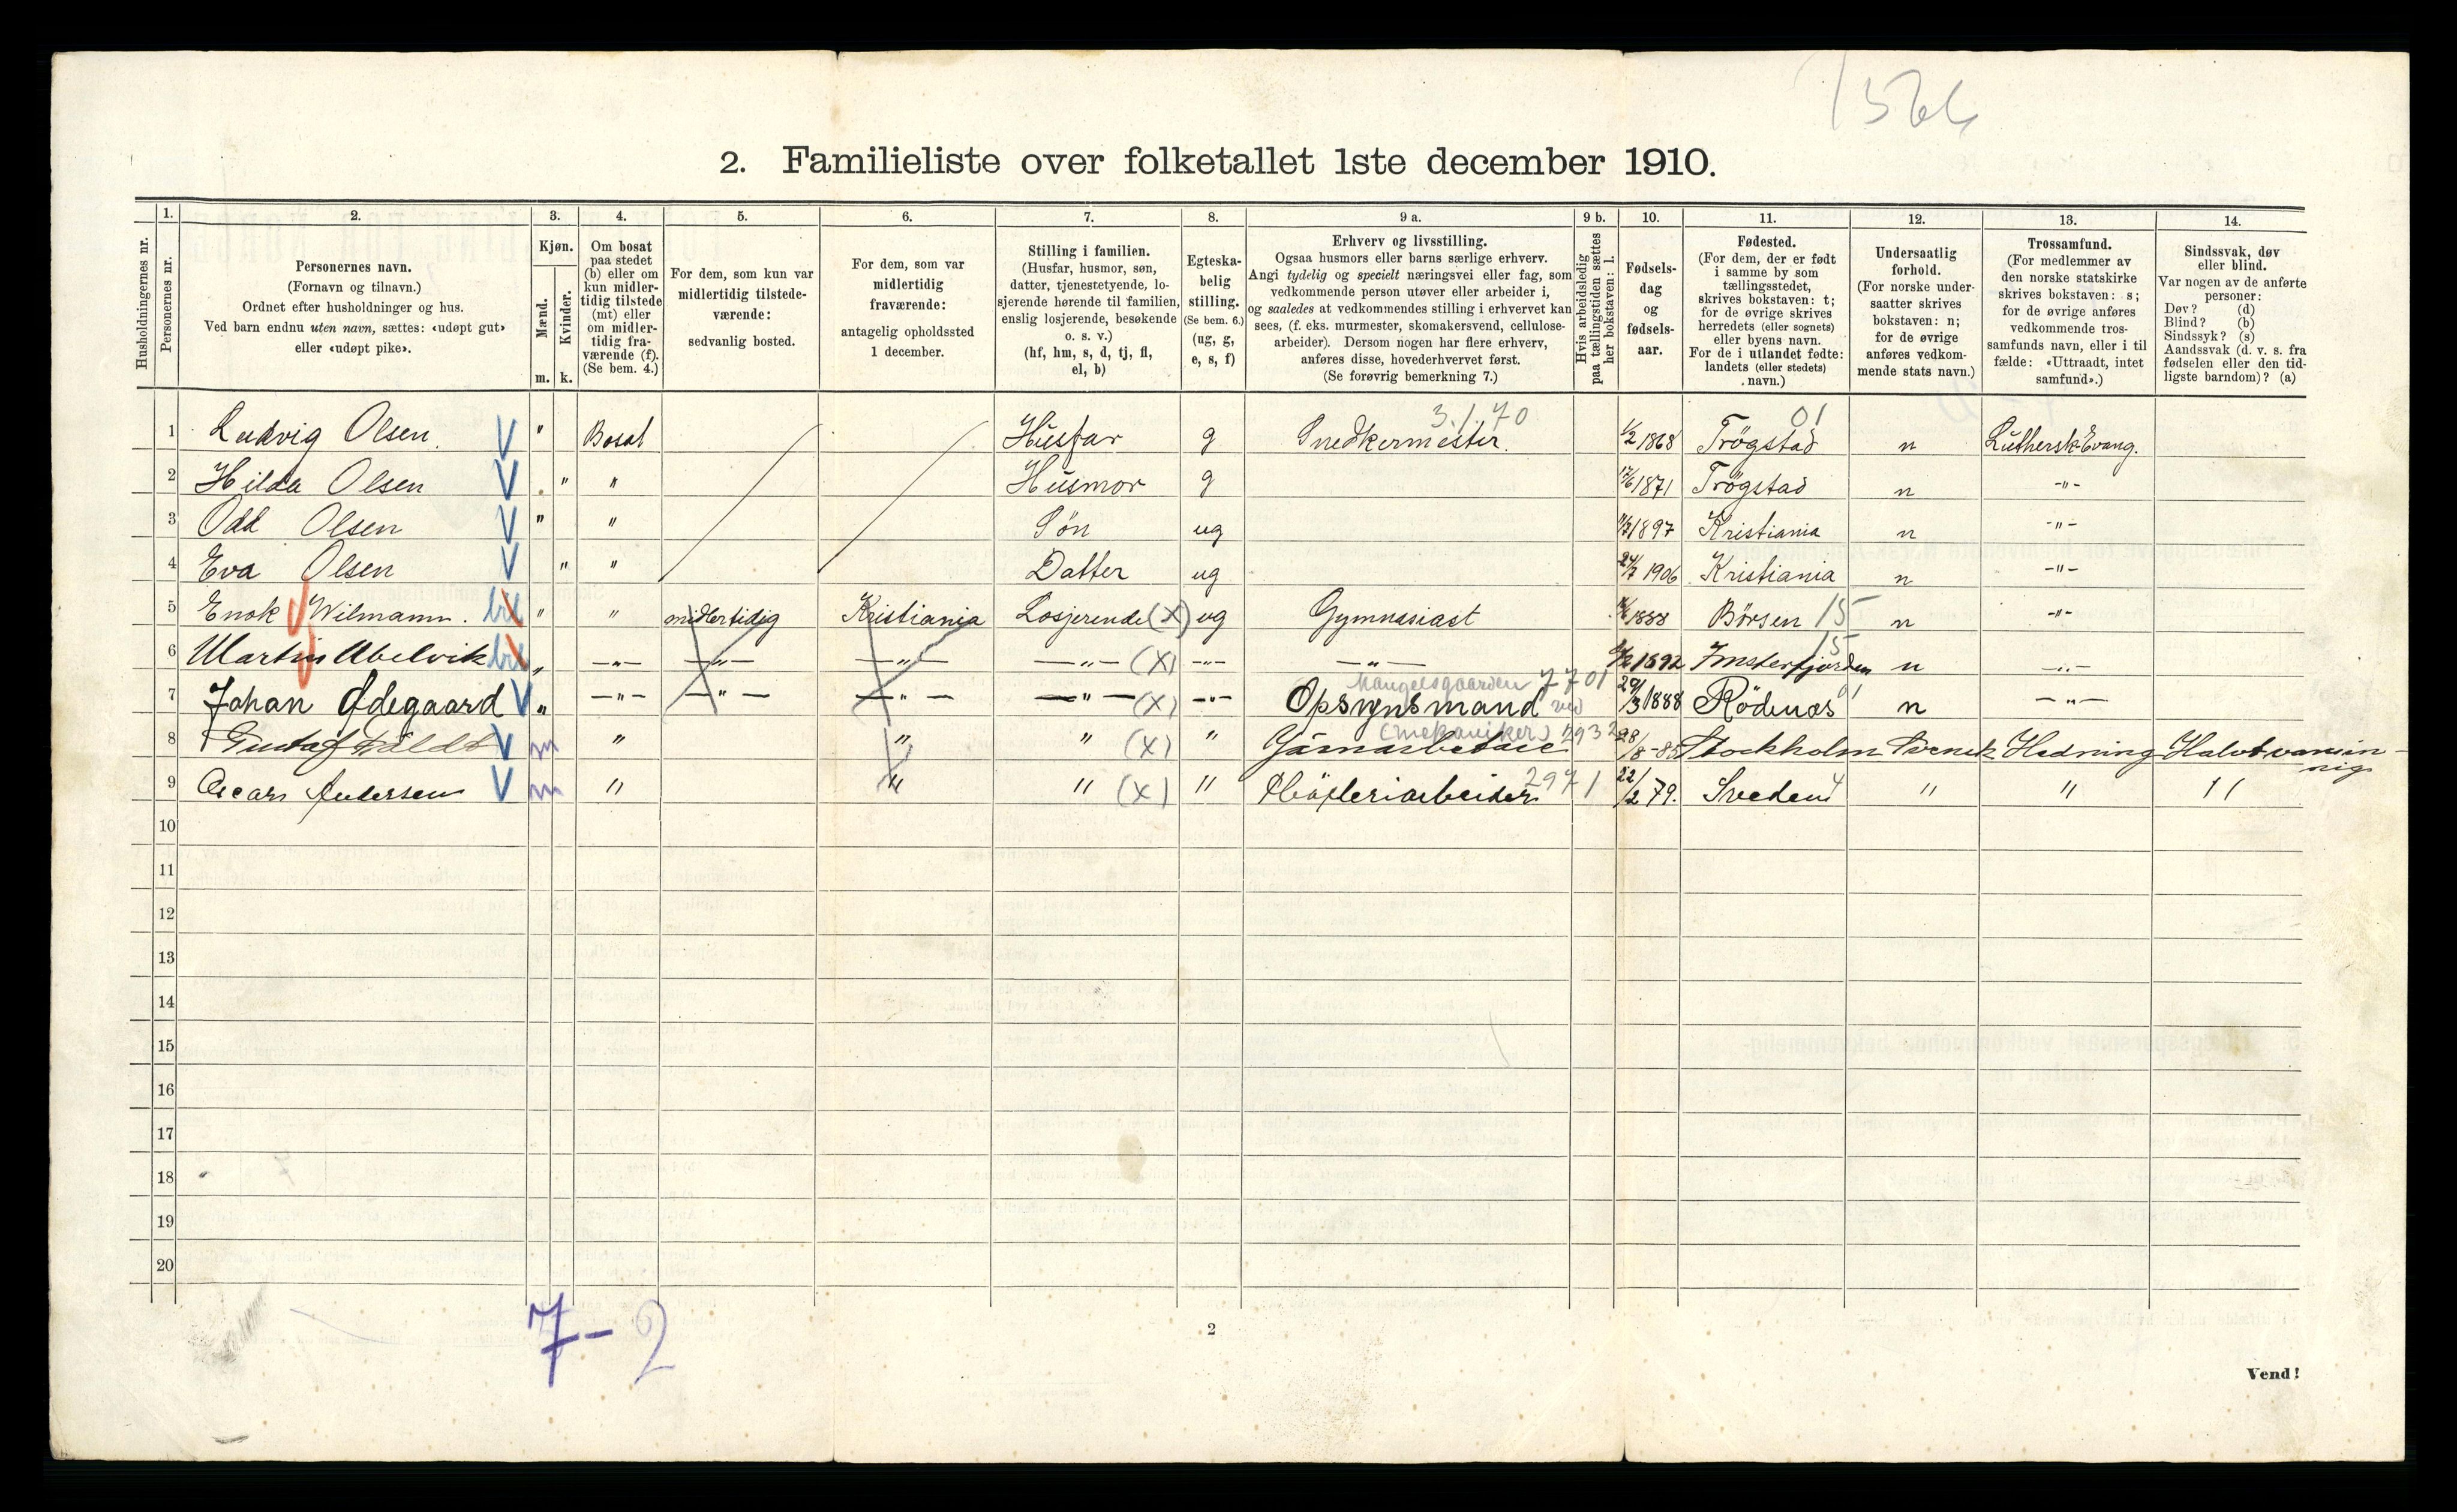 2. Familieliste over folketallet 1ste december 1910.
Husholdningernes nr.
1.
Personernes nr.
2.
Personernes navn.
(Fornavn og tilnavn.)
Ordnet efter husholdninger og hus.
Ved barn endnu uten navn, sættes: «udøpt gut»
eller «udøpt pike».
3.
Kjøn.
Mænd.
Kvinder.
m. k.
4.
Om bosat
paa stedet
(b) eller om
kun midler-
tidig tilstede
(mt) eller
om midler-
tidig fra-
værende (f).
(Se bem. 4.)
5.
For dem, som kun var
midlertidig tilstede-
værende:
sedvanlig bosted.
6.
For dem, som var
midlertidig
fraværende:
antagelig opholdssted
1 december.
7.
Stilling i familien.
(Husfar, husmor, søn,
datter, tjenestetyende, lo-
sjerende hørende til familien,
enslig losjerende, besøkende
o. s. v.)
(hf, hm, s, d, tj, fl,
el, b)
8.
Egteska-
belig
stilling.
(Se bem. 6.)
(ug, g,
e, s, f)
9 a.
Erhverv og livsstilling.
Ogsaa husmors eller barns særlige erhverv.
Angi tydelig og specielt næringsvei eller fag, som
vedkommende person utøver eller arbeider i,
og saaledes at vedkommendes stilling i erhvervet kan
sees, (f. eks. murmester, skomakersvend, cellulose-
arbeider). Dersom nogen har flere erhverv,
anføres disse, hovederhvervet først.
(Se forøvrig bemerkning 7.)
9 b.
Hvis arbeidsledig
paa tællingstiden sættes
her bokstaven: l.
10.
Fødsels-
dag
og
fødsels-
aar.
11.
Fødested.
(For dem, der er født
i samme by som
tællingsstedet,
skrives bokstaven: t;
for de øvrige skrives
herredets (eller sognets)
eller byens navn.
For de i utlandet fødte:
landets (eller stedets)
navn.)
12.
Undersaatlig
forhold.
(For norske under-
saatter skrives
bokstaven: n;
for de øvrige
anføres vedkom-
mende stats navn.)
13.
Trossamfund.
(For medlemmer av
den norske statskirke
skrives bokstaven: s;
for de øvrige anføres
vedkommende tros-
samfunds navn, eller i til
fælde: «Uttraadt, intet
samfund».)
14.
Sindssvak, døv
eller blind.
Var nogen av de anførte
personer:
Døv? (d)
Blind? (b)
Sindssyk? (s)
Aandssvak (d. v. s. fra
fødselen eller den tid-
ligste barndom)? (a)
3.1.70 01
1 Ludvig Olsen. V " Bosat Husfar g Snedkermester. 1/2 1868 Trögstad n Luthersk-Evang.
2 Hilda Olsen V " " Husmor g 1871 Trögstad n -"-
3 Odd Olsen V " " Sön ug 1897 Kristiania n -"-
4 Eva Olsen V " " Datter ug 24/7 1906 Kristiania n -"-
5 Enok Wilmann. " " midlertidig Kristiania Losjerende (X) ug Gymnasiast 1888 Börsen 15 n -"-
6 Martin Abelvik " -"- -"- -"- -"- (X) -"- -"- 1892 15 n -"-
Mangelsgaarden 7701
7 Johan Ødegaard V " -"- -"- -"- -"- (X) -"- Opsynsmand ved 29/3 1888 Rödenæs 01 n -"-
(mekaniker) 2932
8 Gustaf V m " " " (X) " 28/8-85 Stockholm Svensk Hedning Halvt vansin-
nig
2971
9 Oscar Andersen V m " " " (X) " Høvleriarbeider 22/2 79. Sveden " " "
10
11
12
13
14
15
16
17
18
19
20
7-2
2
Vend!